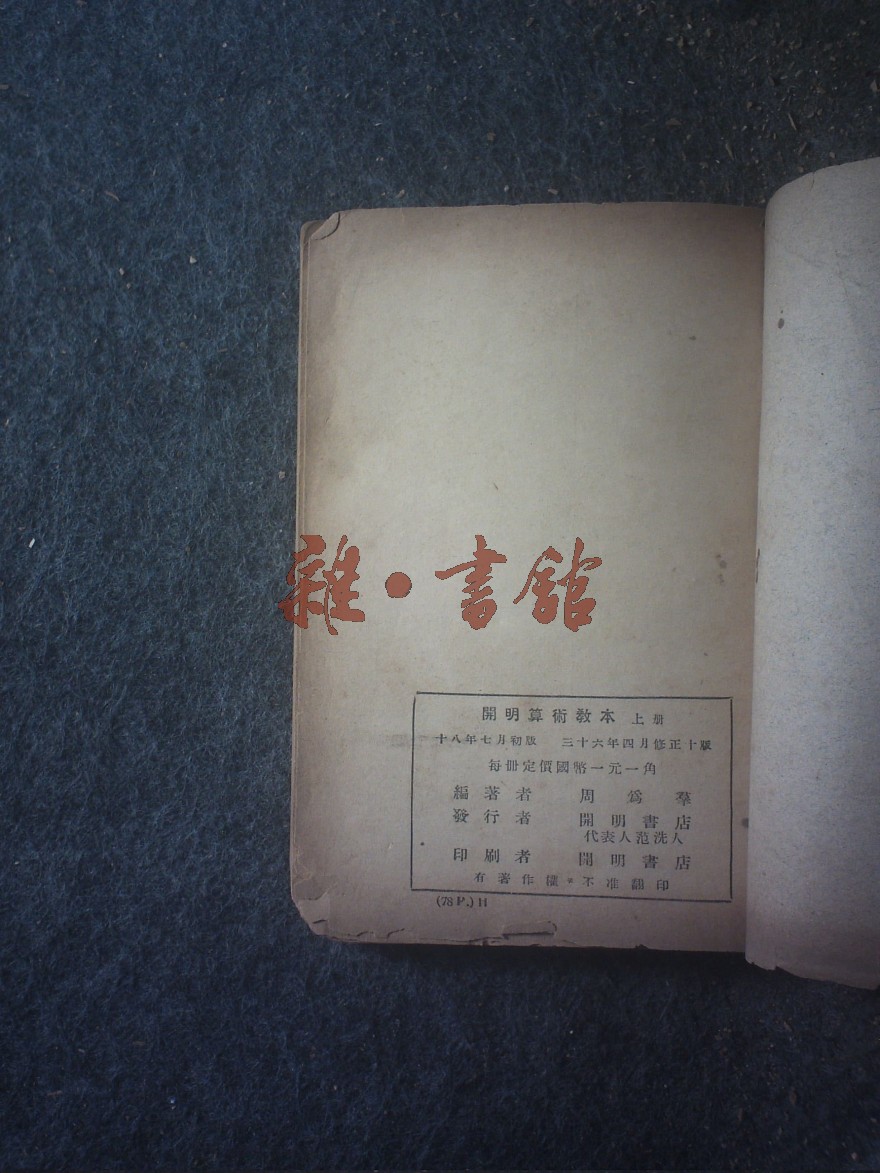 雜·書館
開明算術教本 上册
十八年七月初版 三十六年四月修正十版
每册定價國幣一元一角
編著者 周爲羣
發行者 開明書店
代表人范洗人
印刷者 開明書店
有著作權·不准翻印
(78 P.) H